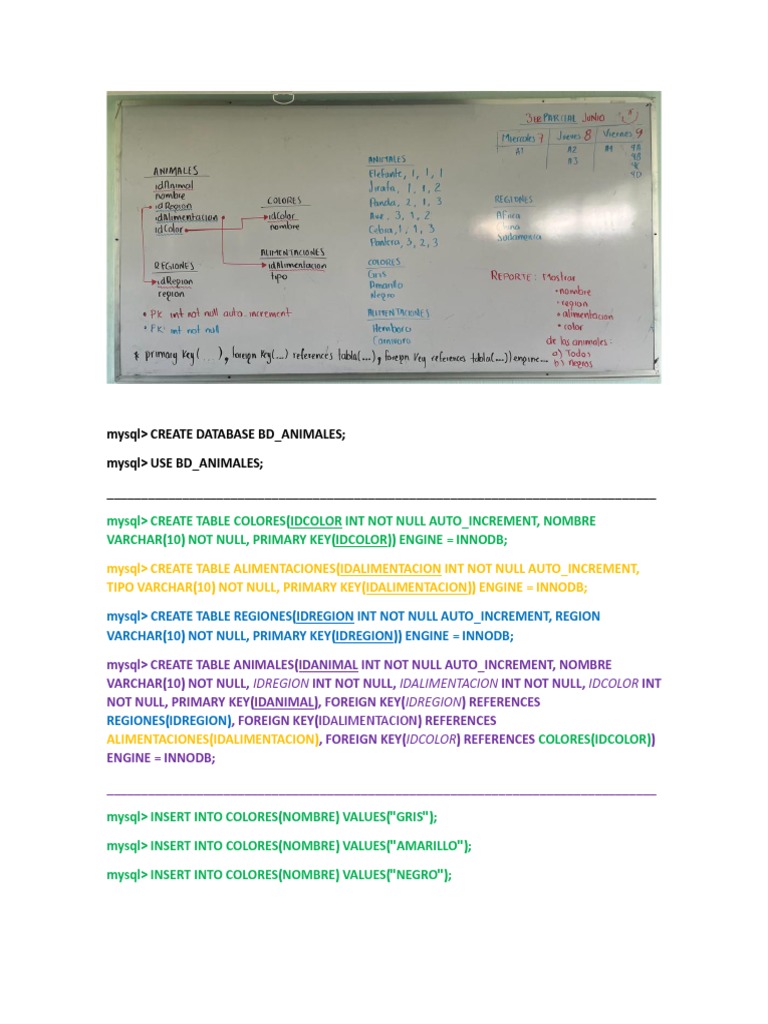 3er PARCIAL JUNIO
Miércoles 7 Jueves 8 Viernes 9
A1 A2 A4 9A
A3 9B
9C
9D
ANIMALES
idAnimal
nombre
idRegion
idAlimentacion
idColor
REGIONES
idRegion
region
COLORES
idColor
nombre
ALIMENTACIONES
idAlimentacion
tipo
ANIMALES
Elefante, 1, 1, 1
Jirafa, 1, 1, 2
Panda, 2, 1, 3
Ave, 3, 1, 2
Cebra, 1, 1, 3
Pantera, 3, 2, 3
COLORES
Gris
Amarillo
Negro
ALIMENTACIONES
Herbívoro
Carnívoro
REGIONES
África
China
Sudamérica
REPORTE: Mostrar
• nombre
• region
• alimentacion
• color
de los animales:
a) Todos
b) Negros
• PK int not null auto_increment
• FK: int not null
* primary key(...), foreign key(...) references tabla(...), foreign key references tabla(...)) engine...
mysql> CREATE DATABASE BD_ANIMALES;
mysql> USE BD_ANIMALES;
mysql> CREATE TABLE COLORES(IDCOLOR INT NOT NULL AUTO_INCREMENT, NOMBRE
VARCHAR(10) NOT NULL, PRIMARY KEY(IDCOLOR)) ENGINE = INNODB;
mysql> CREATE TABLE ALIMENTACIONES(IDALIMENTACION INT NOT NULL AUTO_INCREMENT,
TIPO VARCHAR(10) NOT NULL, PRIMARY KEY(IDALIMENTACION)) ENGINE = INNODB;
mysql> CREATE TABLE REGIONES(IDREGION INT NOT NULL AUTO_INCREMENT, REGION
VARCHAR(10) NOT NULL, PRIMARY KEY(IDREGION)) ENGINE = INNODB;
mysql> CREATE TABLE ANIMALES(IDANIMAL INT NOT NULL AUTO_INCREMENT, NOMBRE
VARCHAR(10) NOT NULL, IDREGION INT NOT NULL, IDALIMENTACION INT NOT NULL, IDCOLOR INT
NOT NULL, PRIMARY KEY(IDANIMAL), FOREIGN KEY(IDREGION) REFERENCES
REGIONES(IDREGION), FOREIGN KEY(IDALIMENTACION) REFERENCES
ALIMENTACIONES(IDALIMENTACION), FOREIGN KEY(IDCOLOR) REFERENCES COLORES(IDCOLOR))
ENGINE = INNODB;
mysql> INSERT INTO COLORES(NOMBRE) VALUES("GRIS");
mysql> INSERT INTO COLORES(NOMBRE) VALUES("AMARILLO");
mysql> INSERT INTO COLORES(NOMBRE) VALUES("NEGRO");